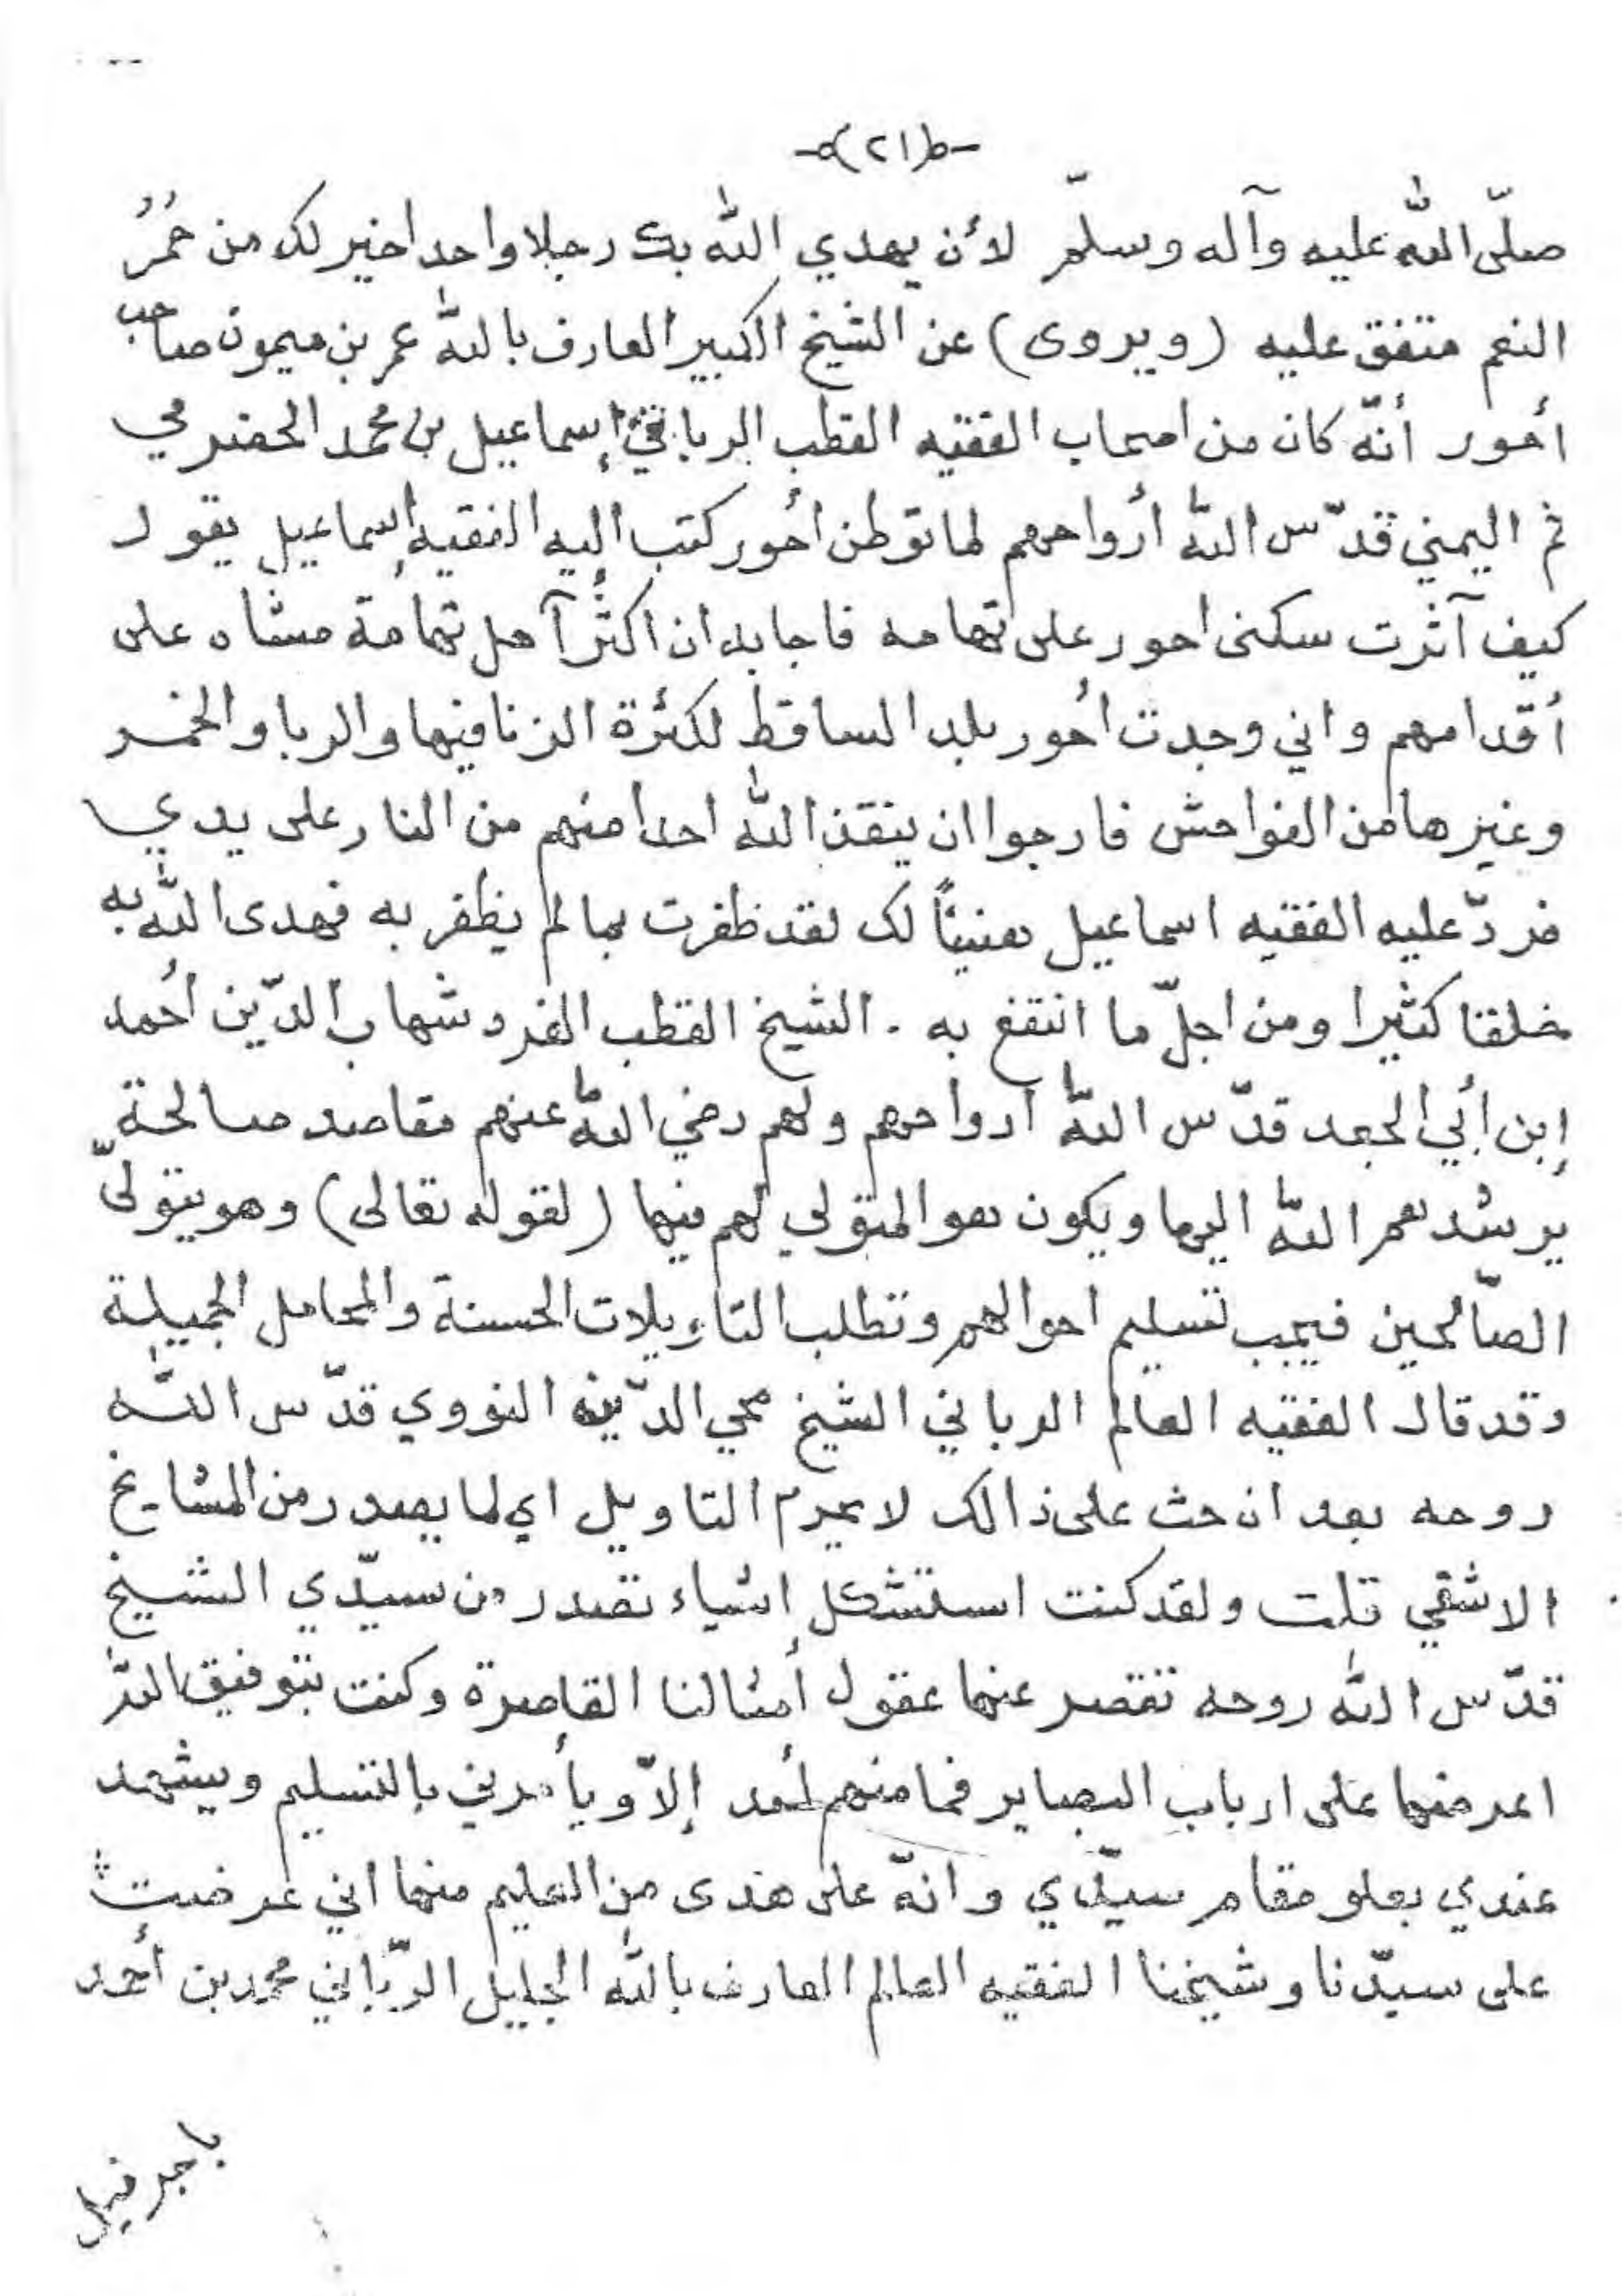 (٢١)
صلّى الله عليه وآله وسلّم لأن يهدي الله بك رجلا واحدا خير لك من حُمُرُ
النعم متفق عليه (ويروى) عن الشيخ الكبير العارف بالله عمر بن ميمون صاحب
أحور أنّه كان من اصحاب الفقيه القطب الرباني إسماعيل بن محمد الحضرمي
ثم اليمني قدّس الله أرواحهم لما توطن أحور كتب اليه الفقيه إسماعيل يقول
كيف آثرت سكنى احور على تهامه فاجابه ان اكثر آهل تهامة مشاه على
أقدامهم واني وجدت أحور بلد الساقط لكثرة الزنا فيها والربا والخمر
وغيرها من الفواحش فارجوا ان ينقذ الله احدا منهم من النار على يدي
فردّ عليه الفقيه اسماعيل هنيئاً لك لقد ظفرت بما لم يظفر به فهدى الله به
خلقا كثيرا ومن اجلّ ما انتفع به . الشيخ القطب الفرد شهاب الدّين أحمد
إبن أبي الجعد قدّس الله ارواحهم ولهم رضي الله عنهم مقاصد صالحة
يرشدهم الله اليها ويكون هو المتولي لهم فيها (لقوله تعالى) وهو يتولىّ
الصّالحين فيجب تسليم احوالهم وتطلب التاويلات الحسنة والمحامل الجميلة
وقد قال الفقيه العالم الرباني الشيخ محي الدّين النووي قدّس الله
روحه بعد ان حث على ذالك لا يحرم التاويل اي لما يصدر من المشايخ
الا شقي قلت ولقد كنت استشكل اشياء تصدر من سيّدي الشيخ
قدّس الله روحه تقصر عنها عقول أمثالنا القاصرة وكنت بتوفيق الله
اعرضها على ارباب البصاير فما منهم أحد إلاّ ويأمرني بالتسليم ويشهد
عندي بعلو مقام سيّدي وانّه على هدى من العليم منها اني عرضت
على سيّدنا وشيخنا الفقيه العالم العارف بالله الجليل الرّباني محمد بن أحمد
باجرفيل